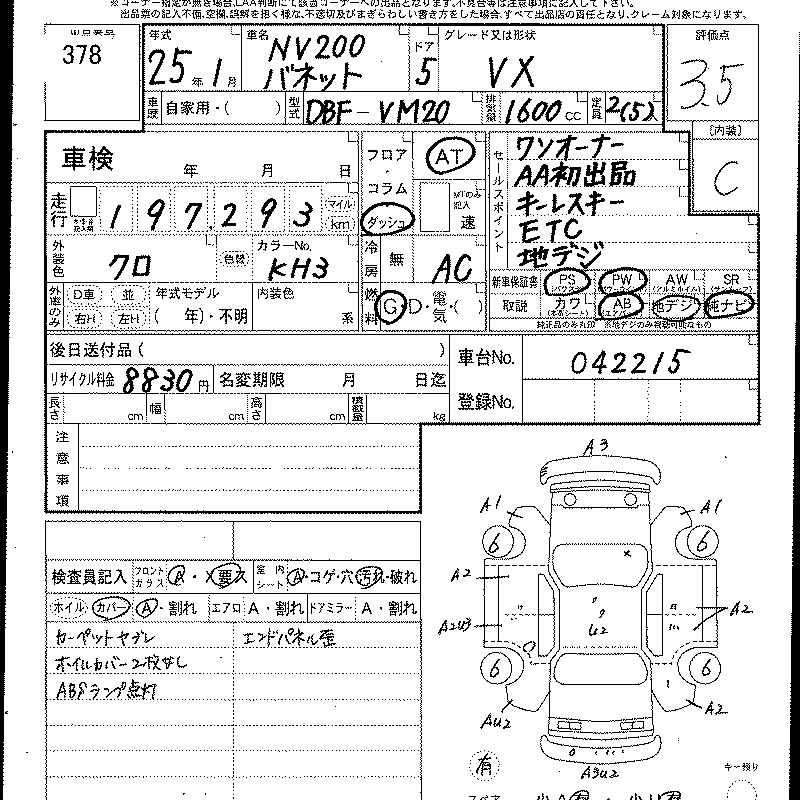 ※コーナー指定が無き場合、LAA判断にて該当コーナーへの出品となります。不具合等は注意事項に記入して下さい。
出品票の記入不備、空欄、誤解を招く様な、不適切及びまぎらわしい書き方をした場合、すべて出品店の責任となり、クレーム対象になります。
出品番号 378
年式 25年 1月
車名 NV200 バネット
ドア 5
グレード又は形状 VX
評価点 3.5
車歴 自家用・( )
型式 DBF-VM20
排気量 1600cc
定員 2(5)人
〔内装〕 C
車検 年 月 日
フロア・コラム ダッシュ AT
MTのみ記入 速
セールスポイント
ワンオーナー
AA初出品
キーレスキー
ETC
地デジ
走行 197,293 マイル km
外装色 クロ 色替
カラーNo. KH3
冷房 無 AC
新車保証書 PS PW AW SR
取説 カワ AB 地デジ 純ナビ
純正品のみ丸印 ※地デジのみ視聴可能なもの
外車のみ D車 並 右H 左H
年式モデル ( 年)・不明
内装色 系
燃料 G・D・電気・( )
後日送付品 ( )
車台No. 042215
リサイクル料金 8830円
名変期限 月 日迄
登録No.
長さ cm 幅 cm 高さ cm 積載量 kg
注意事項
検査員記入 フロントガラス A・X要ス 室内シート A・コゲ・穴・汚れ・破れ
ホイル カバー A・割れ エアロ A・割れ ドアミラー A・割れ
カーペットヤブレ エンドパネル歪
ホイルカバー2枚ナシ
ABSランプ点灯
A3
A1 A1
6 6
A2
A2
A2U3
U2
6 6
AU2 A2
A3U2
有
キー預り